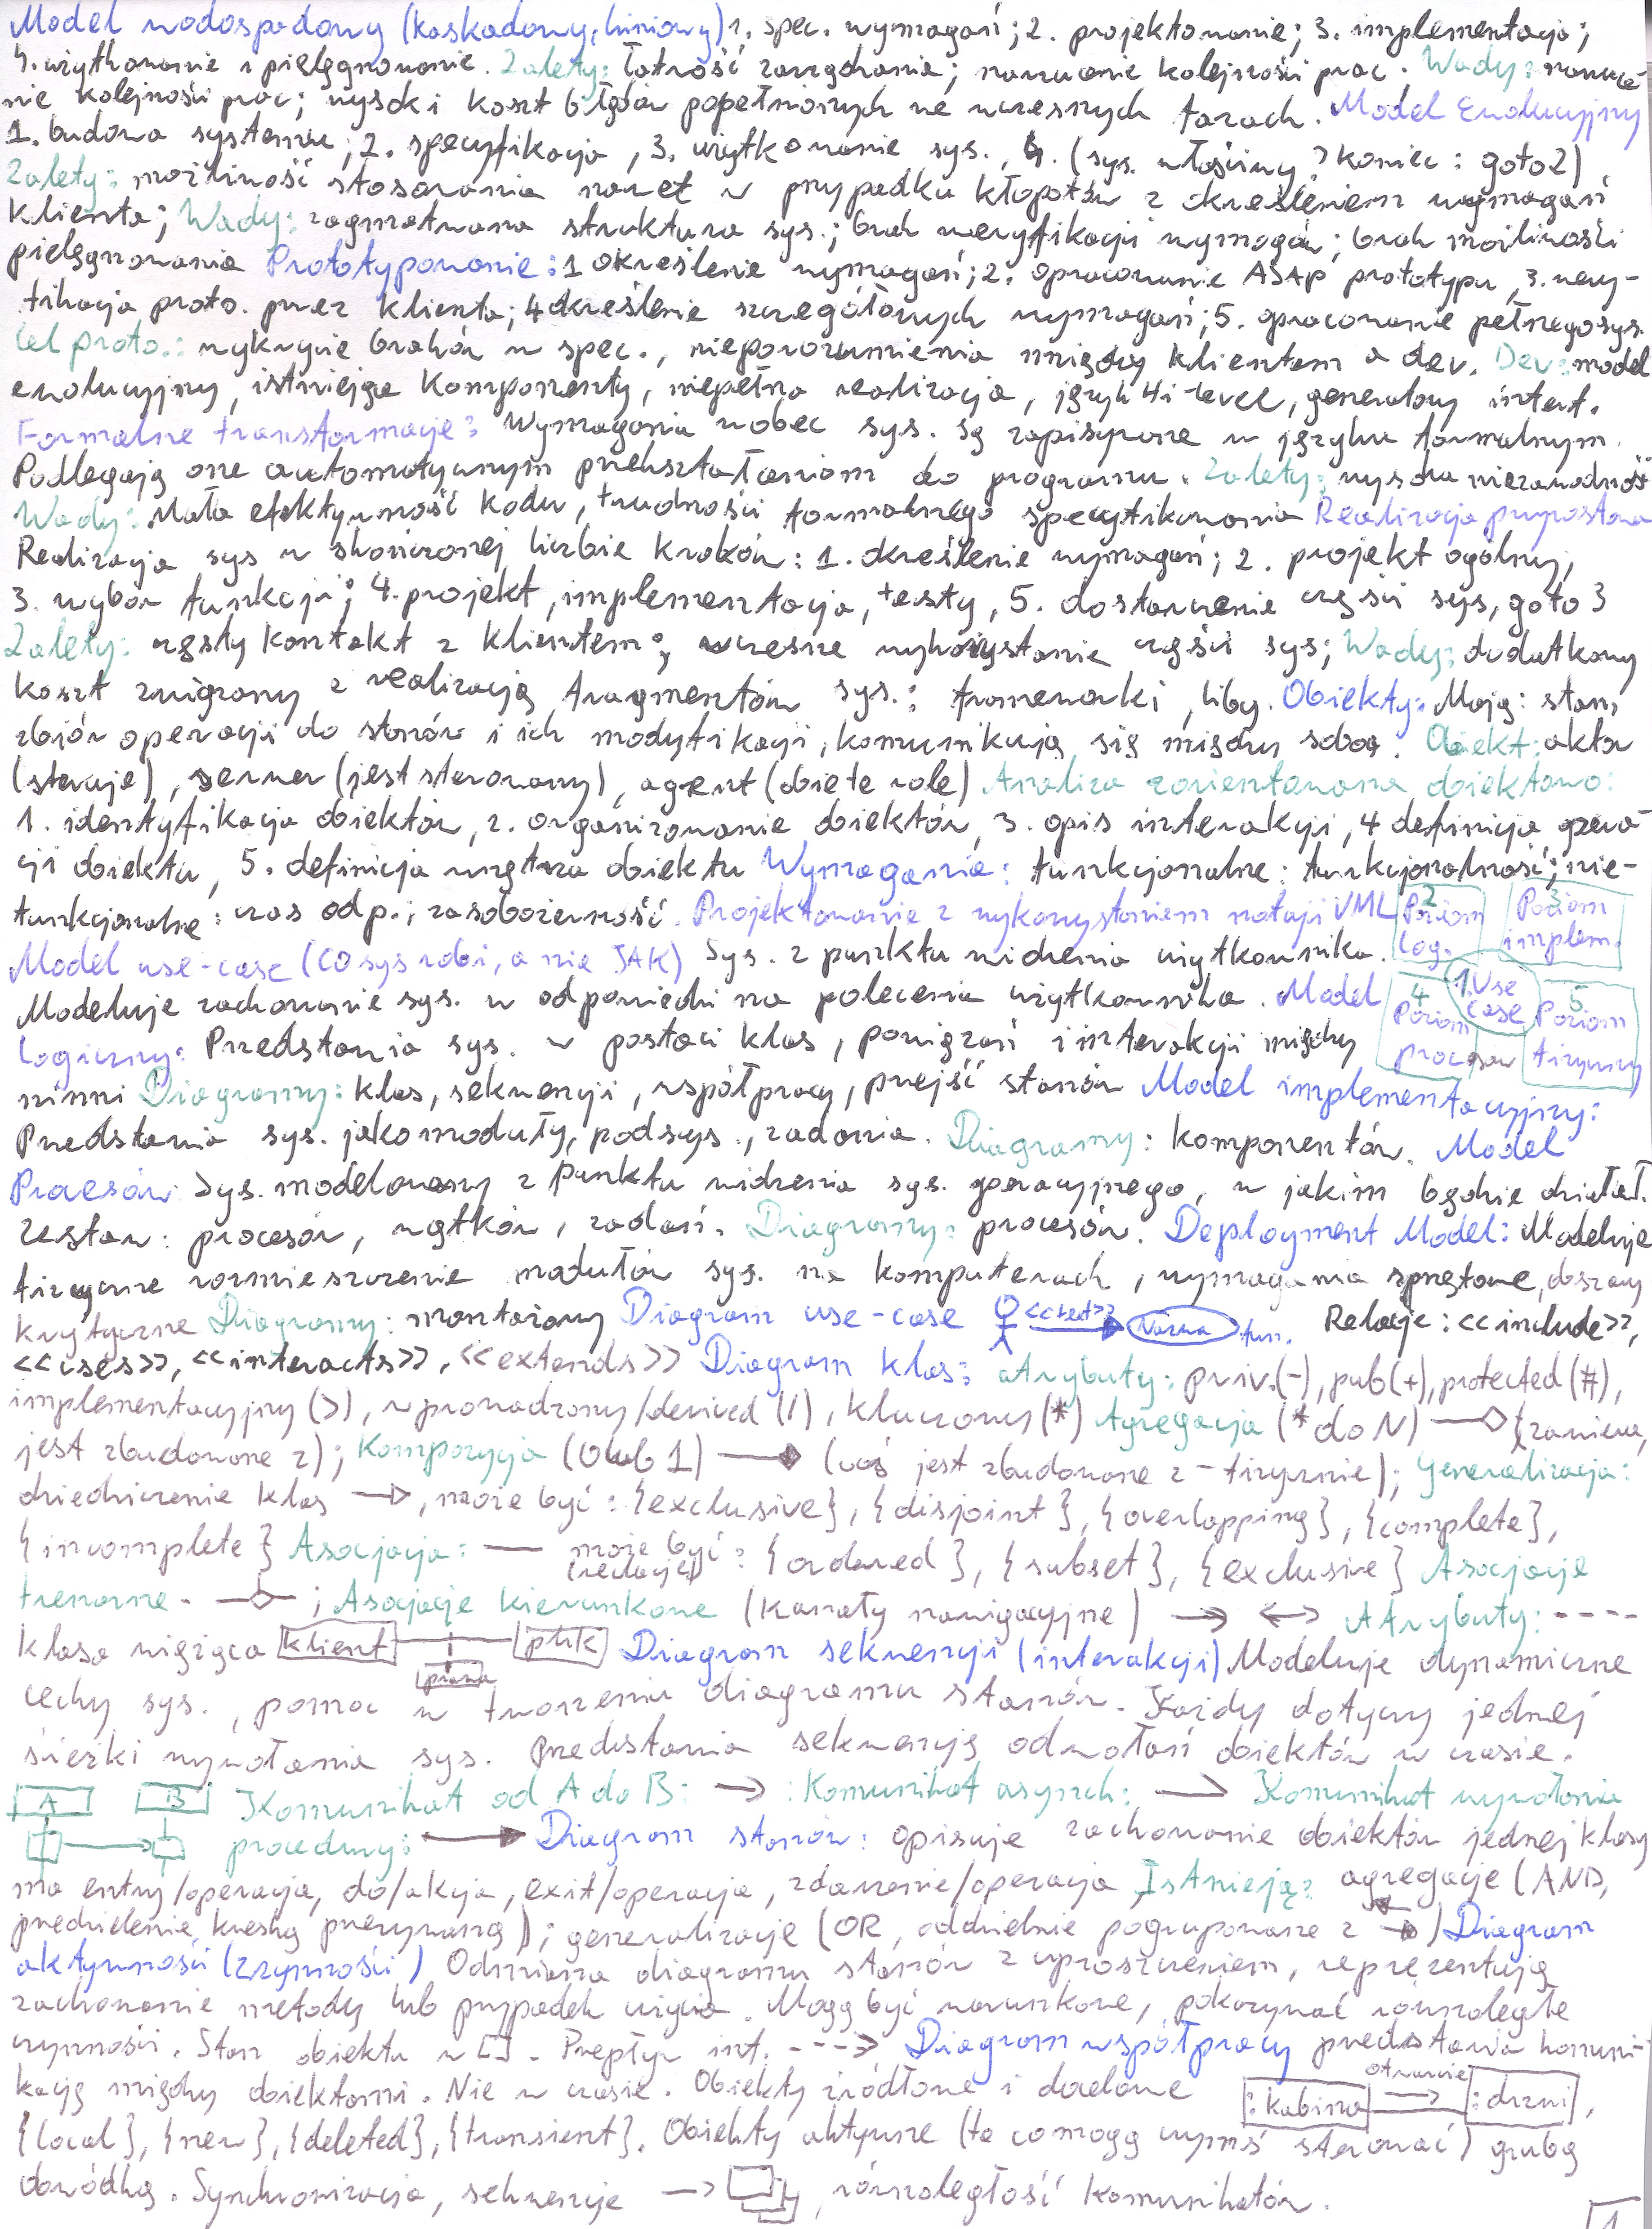 Model wodospadowy (kaskadowy, liniowy) 1. spec. wymagań; 2. projektowanie; 3. implementacja;
4. użytkowanie i pielęgnowanie. Zalety: łatwość zarządzania; narzucenie kolejności prac. Wady: narzuce-
nie kolejności prac; wysoki koszt błędów popełnionych we wczesnych fazach. Model Ewolucyjny
1. budowa systemu; 2. specyfikacja, 3. użytkowanie sys., 4. (sys. właściwy? koniec : goto2)
Zalety: możliwość stosowania nawet w przypadku kłopotów z określeniem wymagań
klienta; Wady: zagmatwana struktura sys.; brak weryfikacji wymagań; brak możliwości
pielęgnowania Prototypowanie: 1 określenie wymagań; 2. opracowanie ASAP prototypu, 3. wery-
fikacja proto. przez klienta; 4 określenie szczegółowych wymagań; 5. opracowanie pełnego sys.
Cel proto.: wykrycie braków w spec., nieporozumienia między klientem a dev. Dev: model
ewolucyjny, istniejące komponenty, niepełna realizacja, język Hi-level, generatory interf.
Formalne transformacje: Wymagania wobec sys. są zapisywane w języku formalnym.
Podlegają one automatycznym przekształceniom do programu. Zalety: wysoka niezawodność
Wady: Mała efektywność kodu, trudności formalnego specyfikowania Realizacja przyrostowa
Realizacja sys w skończonej liczbie kroków: 1. określenie wymagań; 2. projekt ogólny;
3. wybór funkcji; 4. projekt, implementacja, testy, 5. dostarczenie części sys, goto 3
Zalety: częsty kontakt z klientem; wczesne wykorzystanie części sys; Wady: dodatkowy
koszt związany z realizacją fragmentów sys.: frameworki, liby. Obiekty: Mają: stan,
zbiór operacji do stanów i ich modyfikacji, komunikują się między sobą. Obiekt: aktor
(steruje), serwer (jest sterowany), agent (obie te role) Analiza zorientowana obiektowo:
1. identyfikacja obiektów, 2. organizowanie obiektów, 3. opis interakcji, 4 definicja opera-
cji obiektu, 5. definicja wnętrza obiektu Wymagania: funkcjonalne: funkcjonalność; nie-
funkcjonalne: czas odp.; zasobożerność. Projektowanie z wykorzystaniem notacji UML
2 Poziom log.
3 Poziom implem.
Model use-case (CO sys robi, a nie JAK) Sys. z punktu widzenia użytkownika.
Modeluje zachowanie sys. w odpowiedzi na polecenia użytkownika. Model
1. Use case
4 Poziom procesów
5 Poziom fizyczny
Logiczny: Przedstawia sys. w postaci klas, powiązań i interakcji między
nimi Diagramy: klas, sekwencji, współpracy, przejść stanów Model implementacyjny:
Przedstawia sys. jako moduły, podsys., zadania. Diagramy: komponentów. Model
Procesów: Sys. modelowany z punktu widzenia sys. operacyjnego, w jakim będzie działał.
Zestaw: procesów, wątków, zadań. Diagramy: procesów. Deployment Model: Modeluje
fizyczne rozmieszczenie modułów sys. na komputerach, wymagania sprzętowe, obszary
krytyczne Diagramy: montażowy Diagram use-case <<text>> Nazwa fun. Relacje: <<include>>,
<<uses>>, <<interacts>>, <<extends>> Diagram klas: atrybuty: priv.(-), pub(+), protected (#),
implementacyjny (>), wprowadzony/derived (/), kluczowy (*) Agregacja (* do N) (zawiera,
jest zbudowane z); Kompozycja (0 lub 1) (coś jest zbudowane z - fizycznie); Generalizacja:
dziedziczenie klas, może być: {exclusive}, {disjoint}, {overlapping}, {complete},
{incomplete} Asocjacja: — może być (relacje): {ordered}, {subset}, {exclusive} Asocjacje
trenarne - ; Asocjacje kierunkowe (kanały nawigacyjne) Atrybuty: ----
klasa wiążąca klient plik prawa Diagram sekwencji (interakcji) Modeluje dynamiczne
cechy sys., pomoc w tworzeniu diagramu stanów. Każdy dotyczy jednej
ścieżki wywołania sys. Przedstawia sekwencję odwołań obiektów w czasie.
A B Komunikat od A do B: → : Komunikat asynch: Komunikat wywołania
procedury: Diagram stanów: opisuje zachowanie obiektów jednej klasy
ma entry/operacja, do/akcja, exit/operacja, zdarzenie/operacja Istnieją: agregacje (AND,
przedzielenie kreską przerywaną); generalizacje (OR, oddzielnie pogrupowane z →) Diagram
aktywności (czynności) Odmiana diagramu stanów z uproszczeniem, reprezentują
zachowanie metody lub przypadek użycia. Mogą być warunkowe, pokazywać równoległe
czynności. Stan obiektu w []. Przepływ inf. ---> Diagram współpracy przedstawia komuni-
kację między obiektami. Nie w czasie. Obiekty źródłowe i docelowe :kabina otwarcie :drzwi,
{local}, {new}, {deleted}, {transient}. Obiekty aktywne (te co mogą czymś sterować) grubą
obwódką. Synchronizacja, sekwencje → , równoległość komunikatów.
1